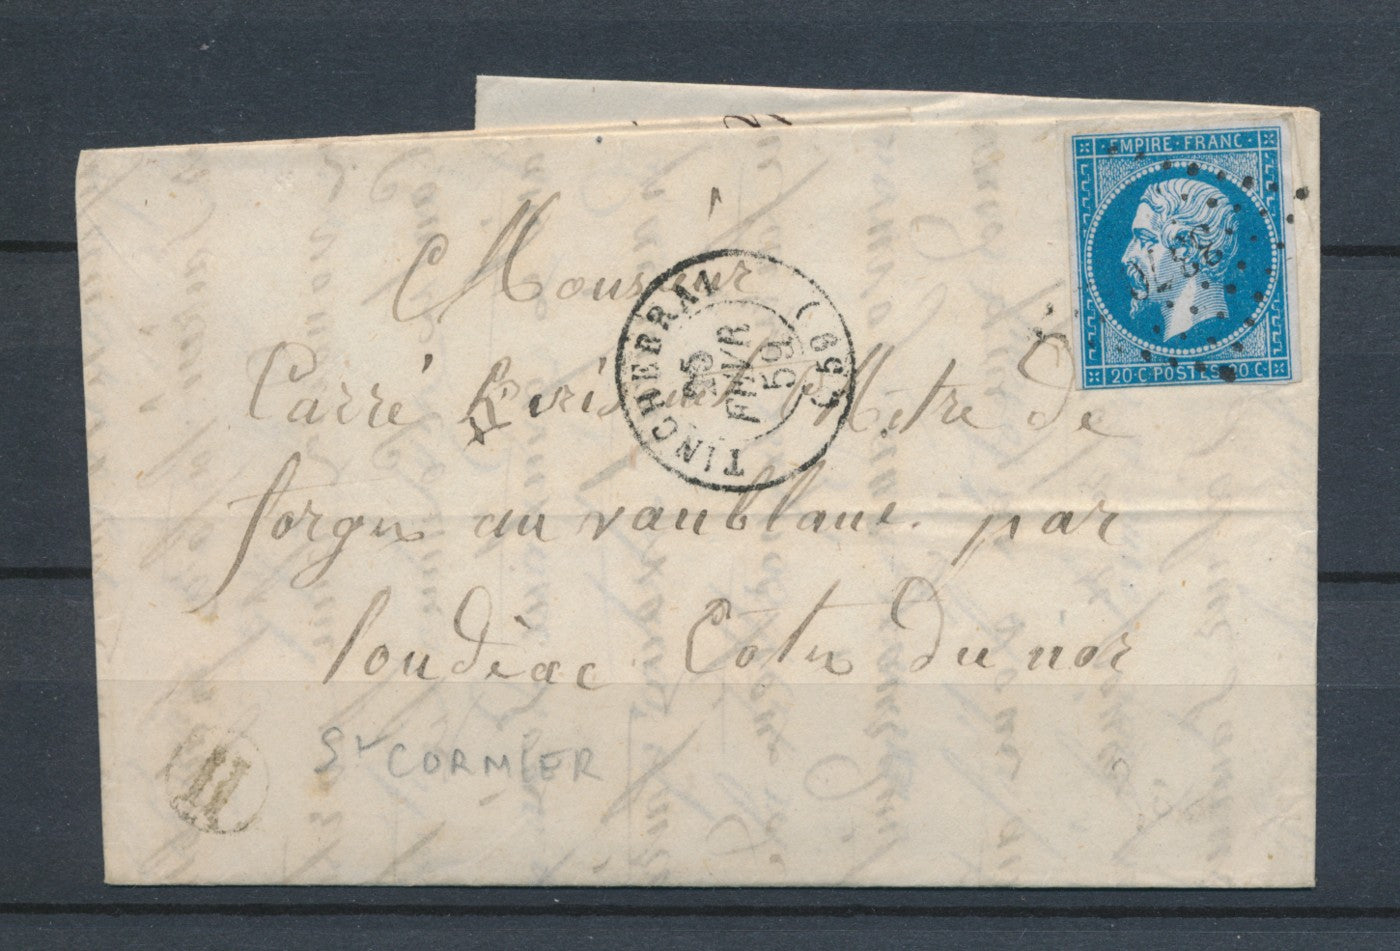 EMPIRE · FRANC ·
3376
20 · C · POSTES · 20 · C ·
Monsieur
TINCHEBRAY (59)
25
FEVR
59
Carré Metre de
forges au vaublanc par
loudéac Cotes Du nor
St CORMIER
H